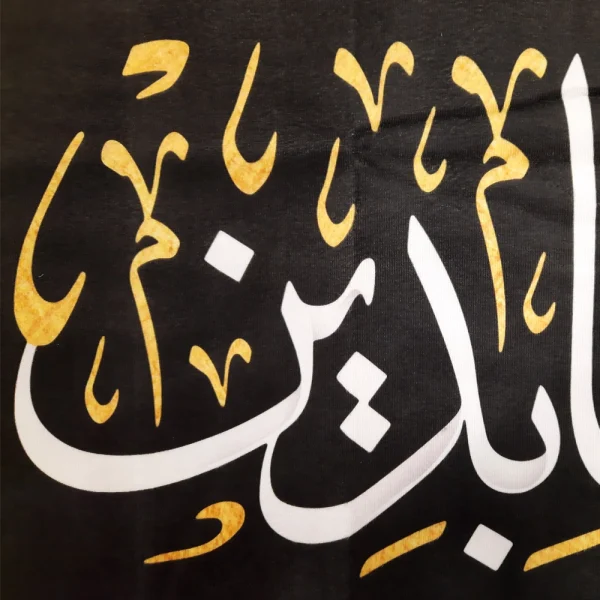 ابدين